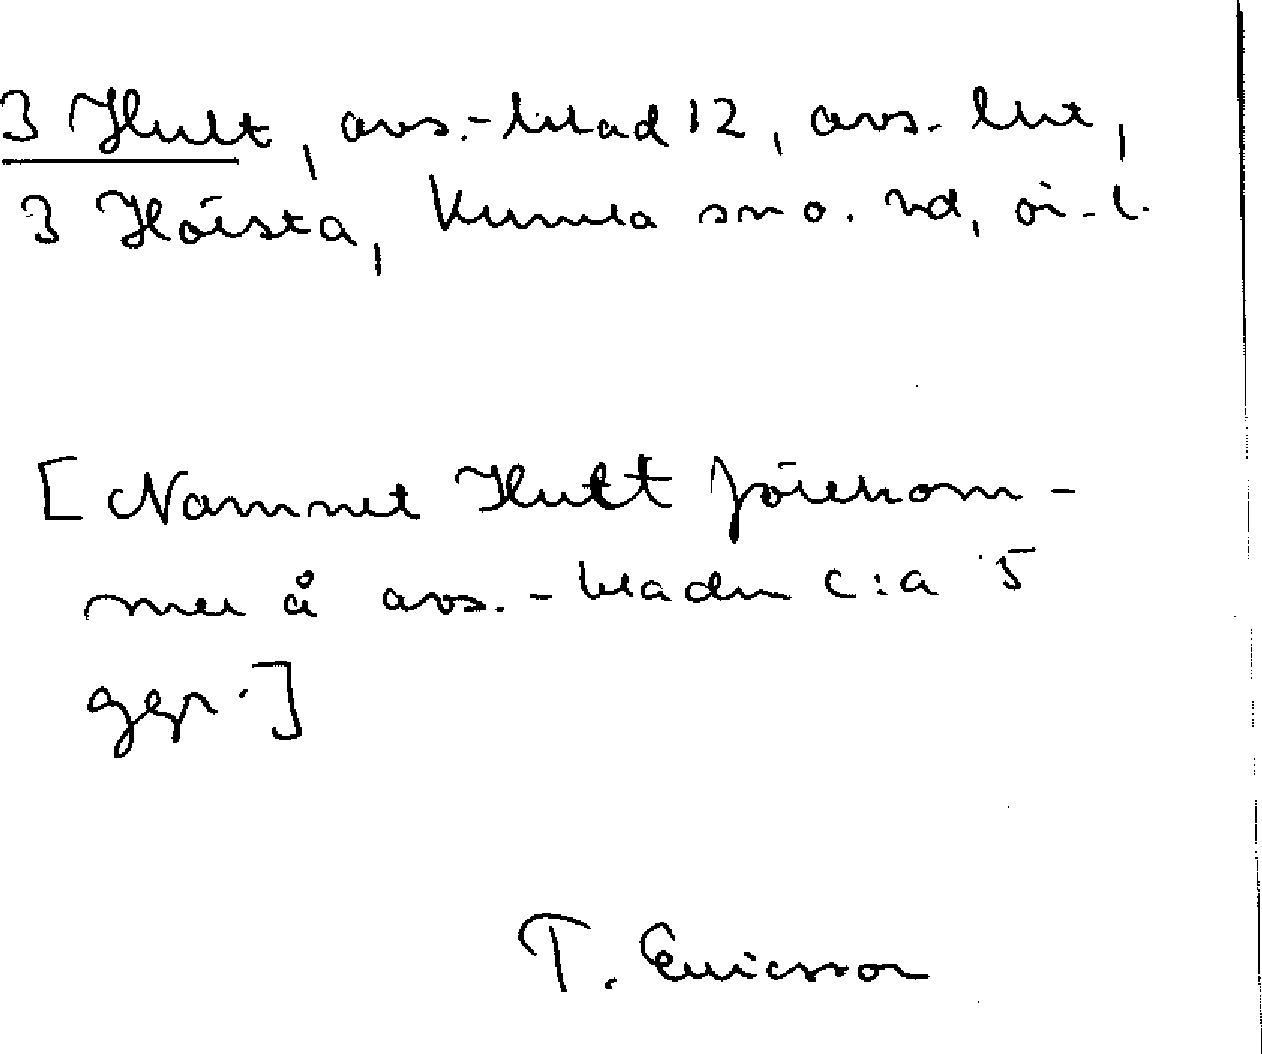 3 Hult, avs.-blad 12, avs. Hult,
3 Hörsta, Kumla sn o. hd, ör. l.
[Namnet Hult förekom-
mer å avs.-bladen c:a 5
ggr.]
T. Ericsson